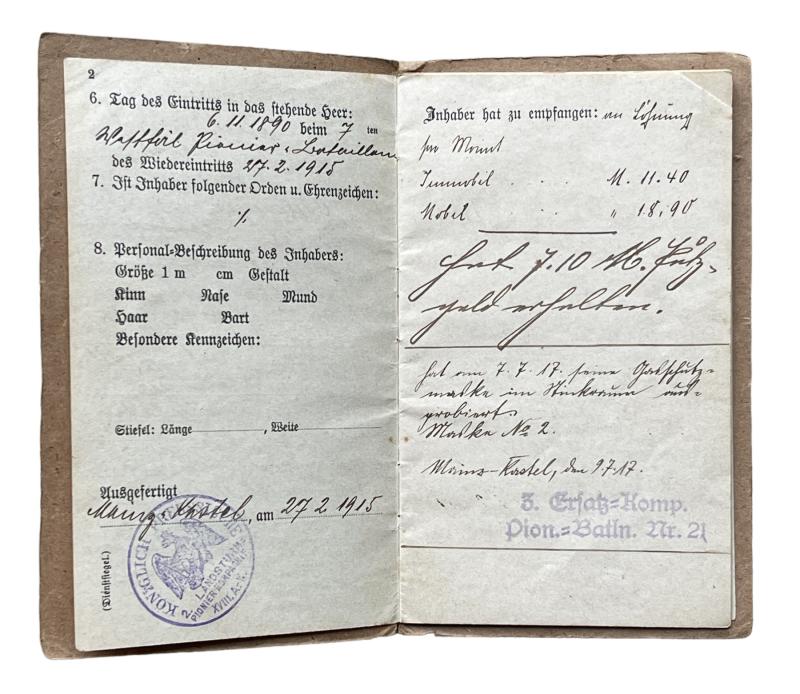 2
6. Tag des Eintritts in das stehende Heer:
6. 11. 1890 beim 7 ten
Westfäl Pionier-Bataillon
des Wiedereintritts 27. 2. 1915
7. Ist Inhaber folgender Orden u. Ehrenzeichen:
8. Personal-Beschreibung des Inhabers:
Größe 1 m cm Gestalt
Kinn Nase Mund
Haar Bart
Besondere Kennzeichen:
Stiefel: Länge , Weite
Ausgefertigt
Mainz-Kastel, am 27 2 1915
(Dienstsiegel.)
KÖNIGLICH
2. LANDSTURM-
PIONIER-KOMPAGNIE
XVIII. A.-K.
Inhaber hat zu empfangen: an Löhnung
pro Monat
Immobil . . . M. 11.40
Mobil . . " 18,90
hat 7.10 M. Putz-
geld erhalten.
hat am 7. 7. 17. seine Gasschutz-
maske im Stinkraum aus-
probiert.
Maske No 2.
Mainz-Kastel, den 9.7.17.
3. Ersatz-Komp.
Pion.-Batln. Nr. 21